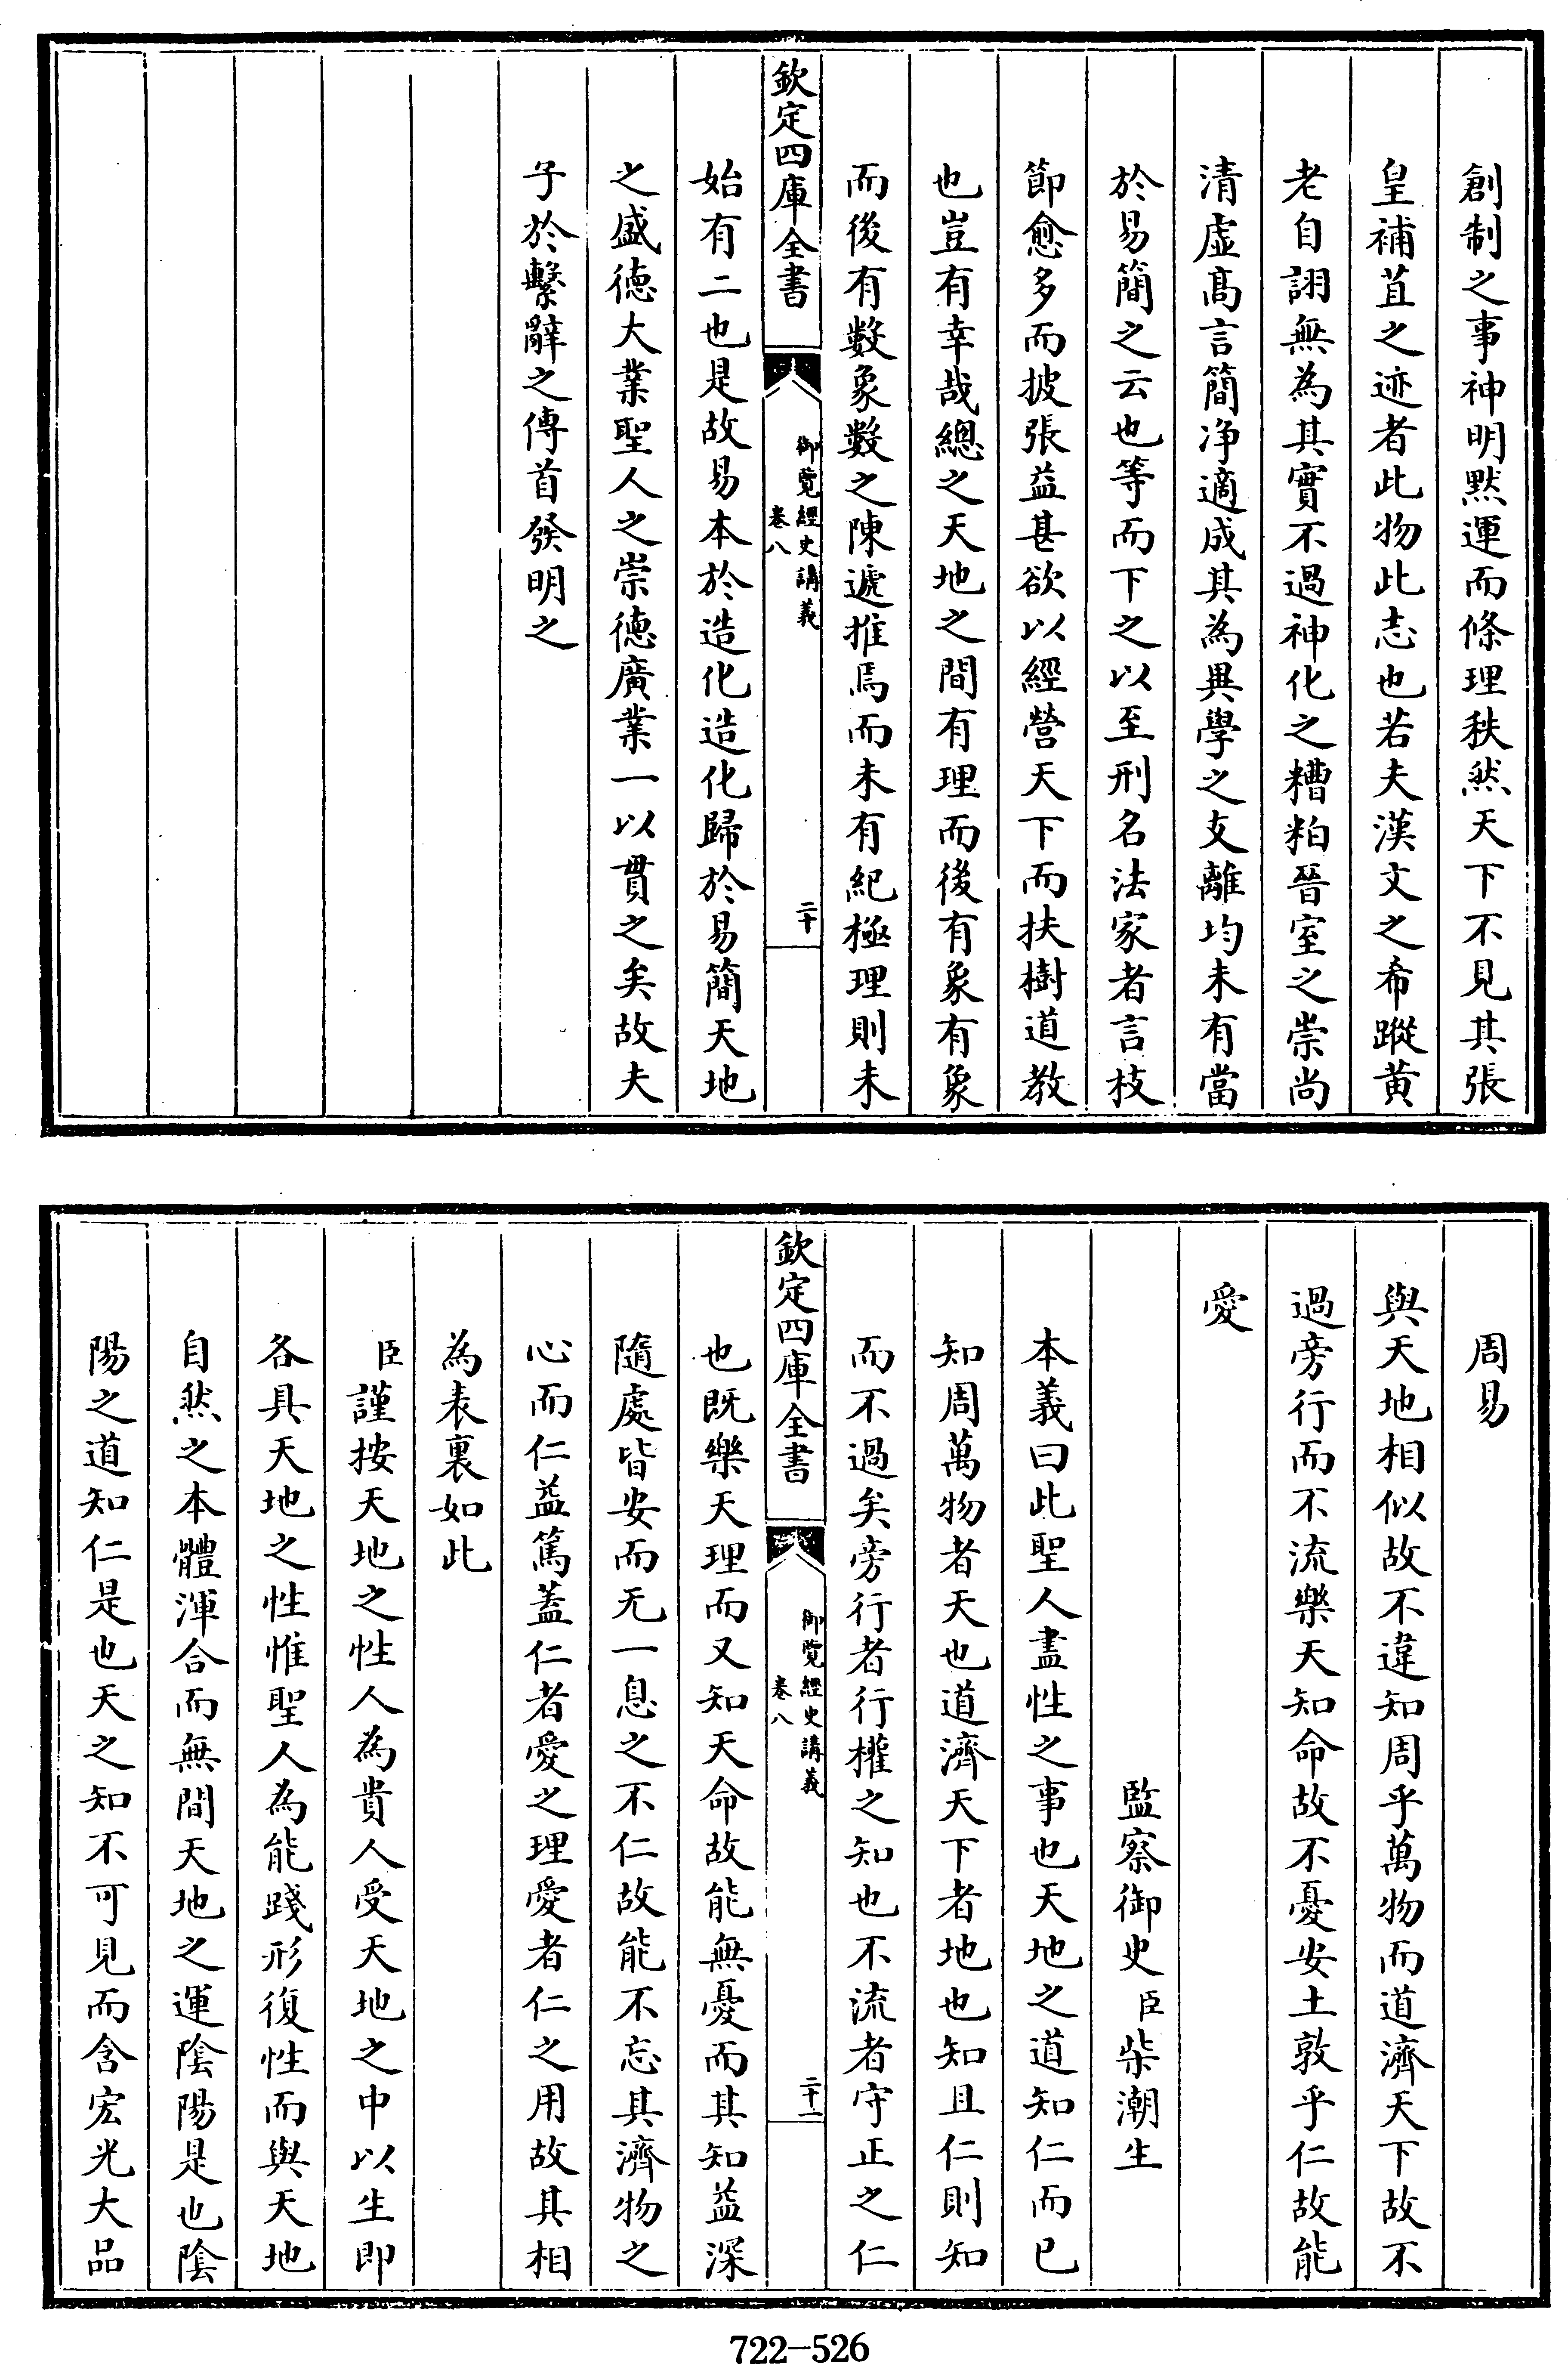 創制之事神明黙運而條理秩然天下不見其張
皇補苴之迹者此物此志也若夫漢文之希蹤黄
老自詡無為其實不過神化之糟粕晉室之崇尚
清虛髙言簡净適成其為異學之支離均未有當
於易簡之云也等而下之以至刑名法家者言枝
節愈多而披張益甚欲以經營天下而扶樹道教
也豈有幸哉總之天地之間有理而後有象有象
而後有數象數之陳遞推焉而未有紀極理則未
欽定四庫全書
御覽經史講義
卷八
二十
始有二也是故易本於造化造化歸於易簡天地
之盛徳大業聖人之崇徳廣業一以貫之矣故夫
子於繫辭之傳首發明之
周易
與天地相似故不違知周乎萬物而道濟天下故不
過旁行而不流樂天知命故不憂安土敦乎仁故能
愛
監察御史臣柴潮生
本義曰此聖人盡性之事也天地之道知仁而已
知周萬物者天也道濟天下者地也知且仁則知
而不過矣旁行者行權之知也不流者守正之仁
欽定四庫全書
御覽經史講義
卷八
二十一
也既樂天理而又知天命故能無憂而其知益深
隨處皆安而无一息之不仁故能不忘其濟物之
心而仁益篤蓋仁者愛之理愛者仁之用故其相
為表裏如此
臣謹按天地之性人為貴人受天地之中以生即
各具天地之性惟聖人為能踐形復性而與天地
自然之本體渾合而無間天地之運陰陽是也陰
陽之道知仁是也天之知不可見而含宏光大品
722-526